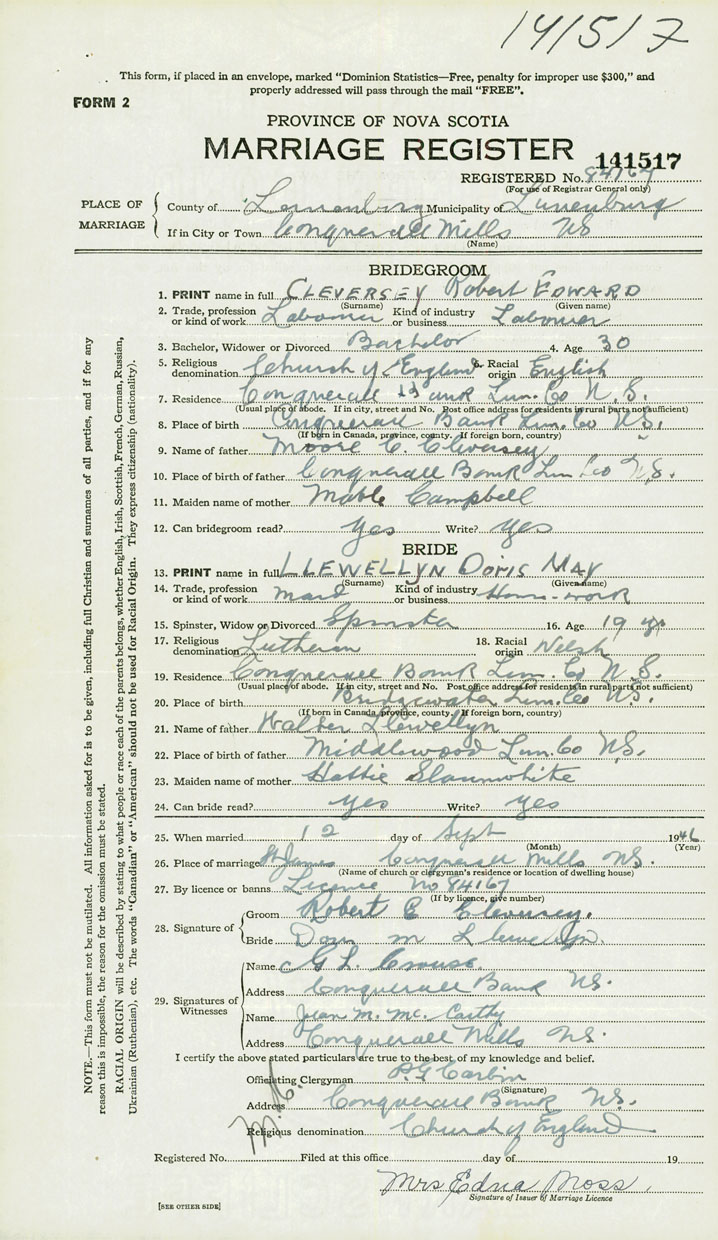 141517
This form, if placed in an envelope, marked "Dominion Statistics—Free, penalty for improper use $300," and
properly addressed will pass through the mail "FREE".
FORM 2
PROVINCE OF NOVA SCOTIA
MARRIAGE REGISTER 141517
REGISTERED No. 84167
(For use of Registrar General only)
PLACE OF MARRIAGE
County of Lunenburg Municipality of Lunenburg
If in City or Town Conquerall Mills NS
(Name)
BRIDEGROOM
1. PRINT name in full CLEVERSEY Robert EDWARD
(Surname) (Given name)
2. Trade, profession or kind of work Labourer Kind of industry or business Labourer
3. Bachelor, Widower or Divorced Bachelor 4. Age 30
5. Religious denomination Church of England 6. Racial origin English
7. Residence Conquerall Bank Lun. Co N.S.
(Usual place of abode. If in city, street and No. Post office address for residents in rural parts not sufficient)
8. Place of birth Conquerall Bank Lun. Co NS.
(If born in Canada, province, county. If foreign born, country)
9. Name of father Moore C. Cleversey
10. Place of birth of father Conquerall Bank Lun Co N.S.
11. Maiden name of mother Mable Campbell
12. Can bridegroom read? yes Write? yes
BRIDE
13. PRINT name in full LLEWELLYN DORIS MAY
(Surname) (Given name)
14. Trade, profession or kind of work maid Kind of industry or business House-work
15. Spinster, Widow or Divorced Spinster 16. Age 19 yrs
17. Religious denomination Lutheran 18. Racial origin Welsh
19. Residence Conquerall Bank Lun. Co N.S.
(Usual place of abode. If in city, street and No. Post office address for residents in rural parts not sufficient)
20. Place of birth Bridgewater Lun. Co NS.
(If born in Canada, province, county. If foreign born, country)
21. Name of father Walter Llewellyn
22. Place of birth of father Middlewood Lun. Co NS.
23. Maiden name of mother Hattie Slaunwhite
24. Can bride read? yes Write? yes
25. When married 12 day of Sept 1946
(Month) (Year)
26. Place of marriage St James Conquerall Mills NS.
(Name of church or clergyman's residence or location of dwelling house)
27. By licence or banns Licence No 84167
(If by licence, give number)
28. Signature of
Groom Robert E Cleversey.
Bride Doris M Llewellyn.
29. Signatures of Witnesses
Name G L Crouse
Address Conquerall Bank NS.
Name Jean M. McCarthy
Address Conquerall Mills NS.
I certify the above stated particulars are true to the best of my knowledge and belief.
Officiating Clergyman P.G. Corbin
(Signature)
Address Conquerall Bank NS.
Religious denomination Church of England
Registered No. Filed at this office day of 19
Mrs Edna Moss.
Signature of Issuer of Marriage Licence
[SEE OTHER SIDE]
NOTE.—This form must not be mutilated. All information asked for is to be given, including full Christian and surnames of all parties, and if for any
reason this is impossible, the reason for the omission must be stated.
RACIAL ORIGIN will be described by stating to what people or race each of the parents belongs, whether English, Irish, Scottish, French, German, Russian,
Ukrainian (Ruthenian), etc. The words "Canadian" or "American" should not be used for Racial Origin. They express citizenship (nationality).